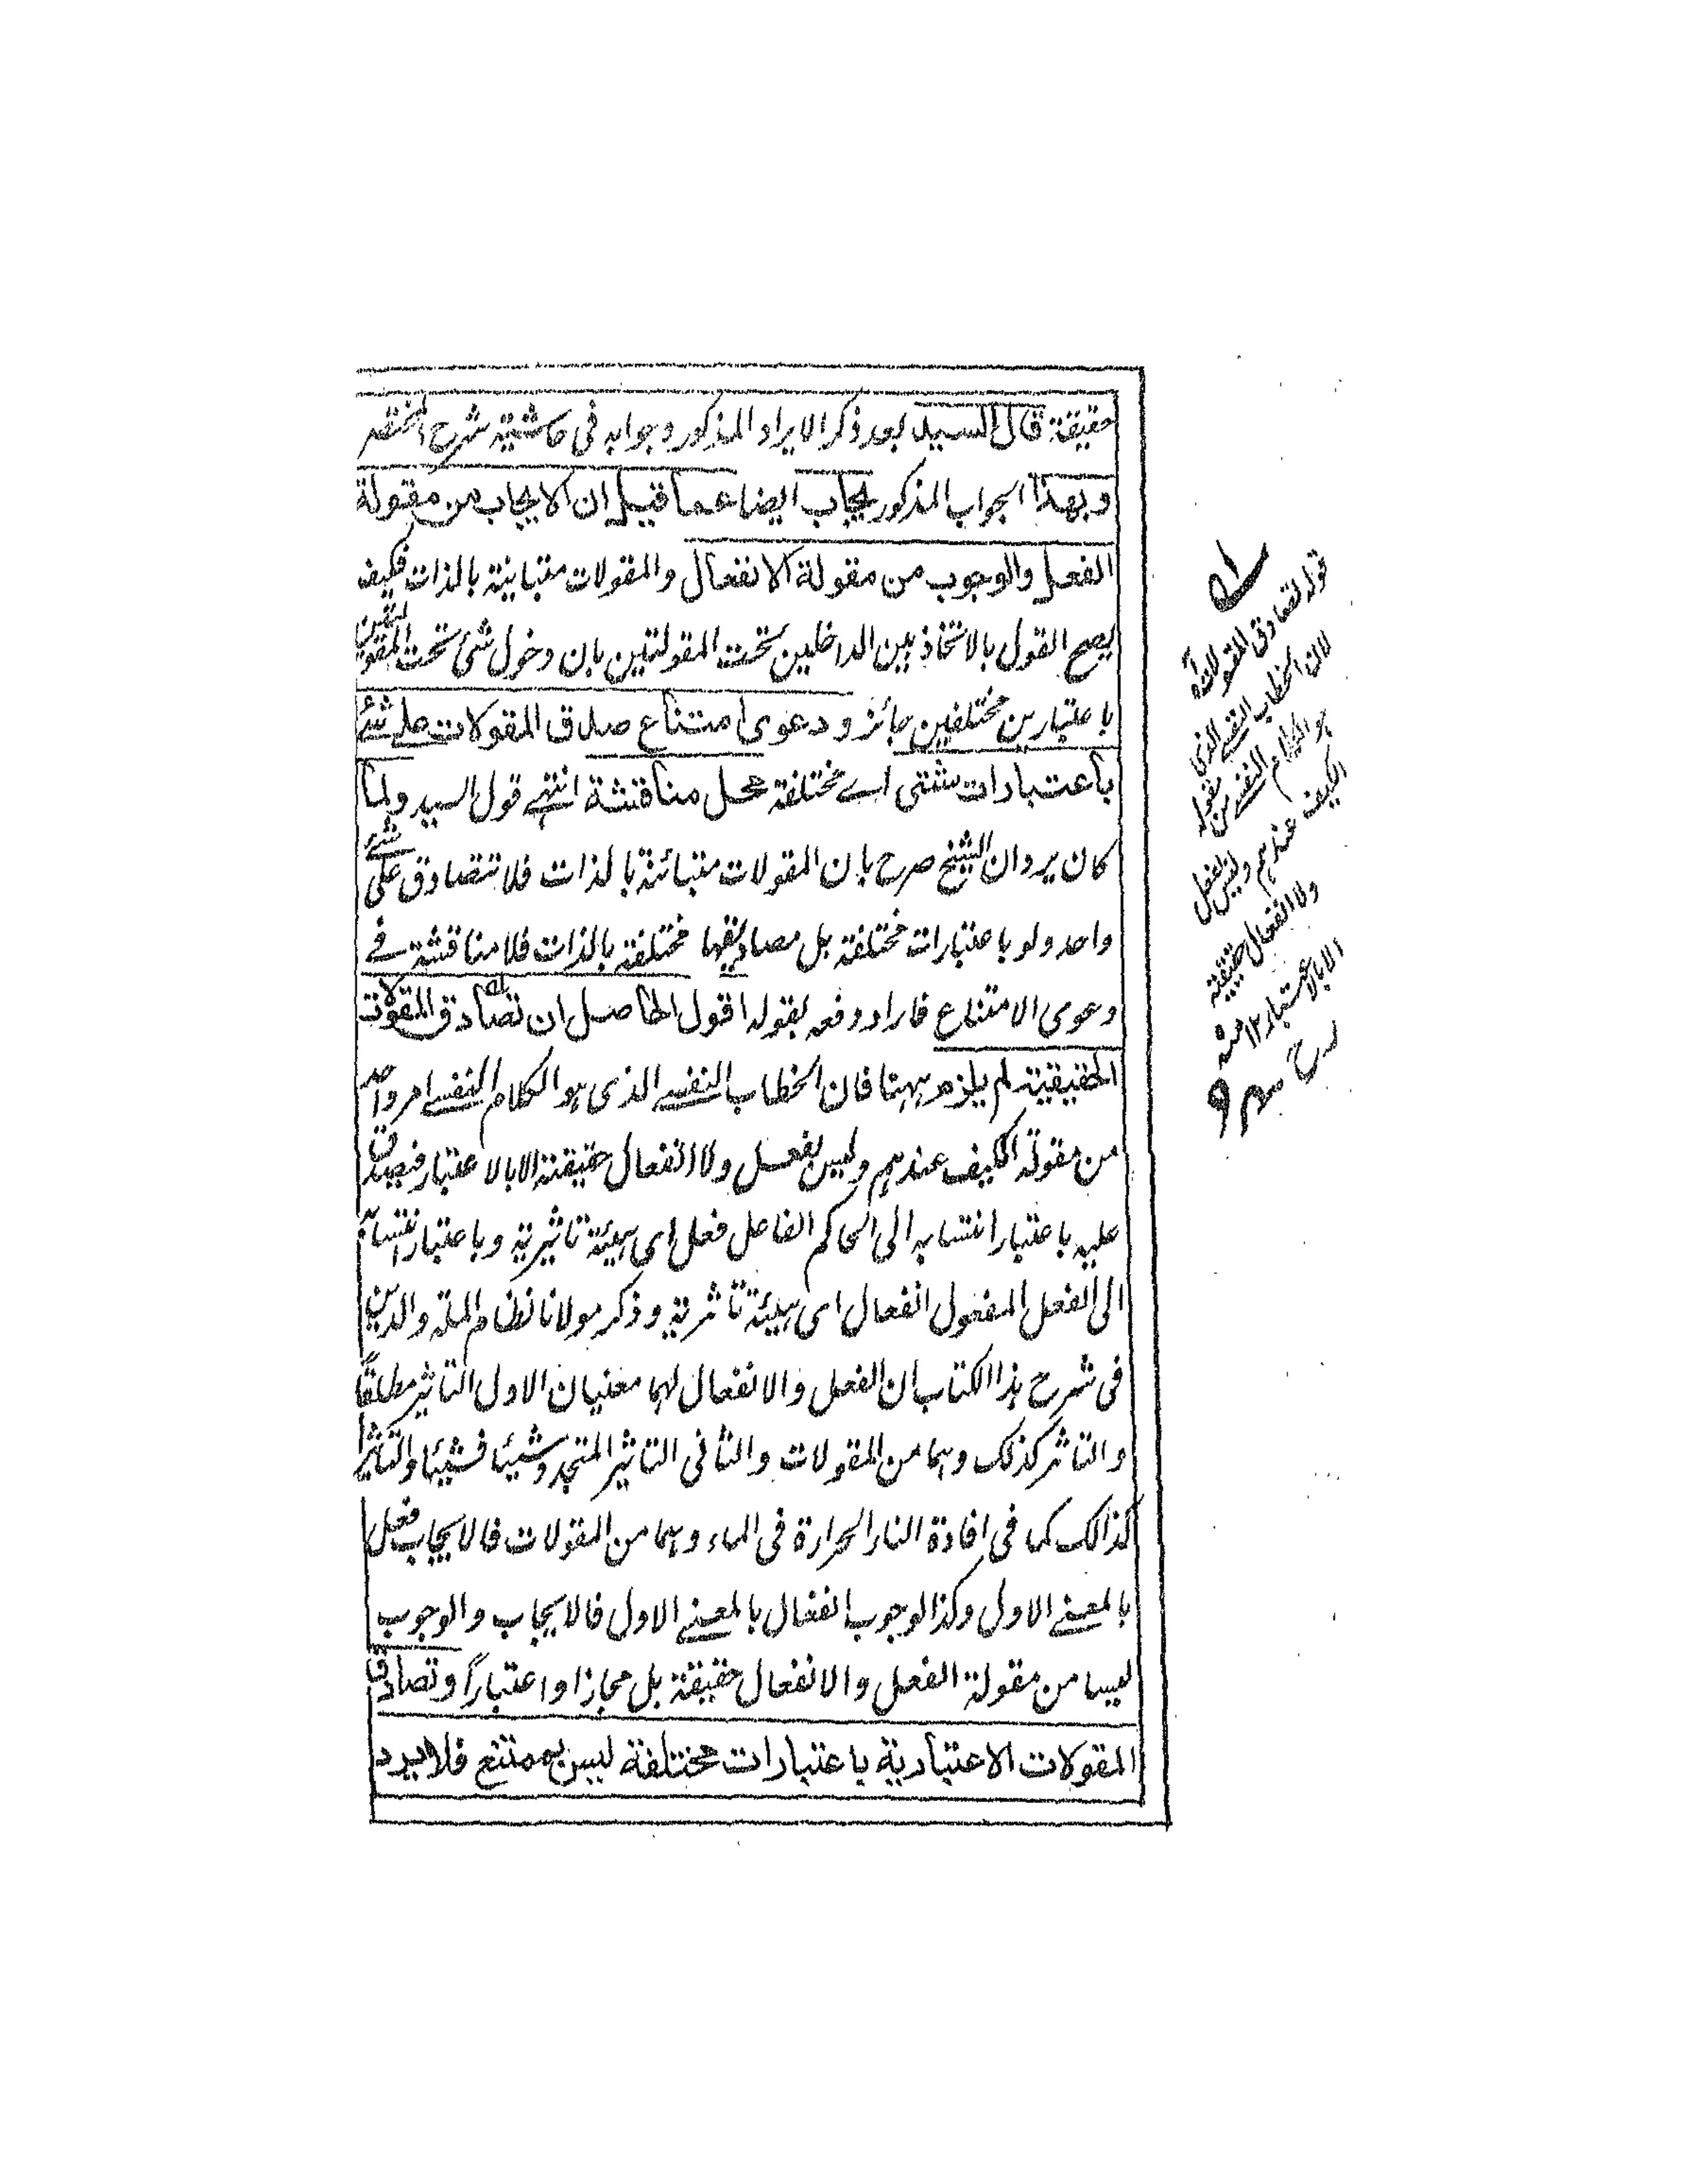 حقيقة قال السيد بعد ذكر الايراد المذكور وجوابه فى حاشية شرح المختصر
وبهذا الجواب المذكور يجاب ايضا عما قيل ان الايجاب من مقولة
الفعل والوجوب من مقولة الانفعال والمقولات متباينة بالذات فكيف
يصح القول بالاتخاذ بين الداخلين تحت المقولتين بان دخول شئ تحت المقولتين
باعتبارين مختلفين جائز ودعوى امتناع صدق المقولات على شئ
باعتبارات شتى اى مختلفة محل مناقشة انتهى قول السيد ولما
كان يرد ان الشيخ صرح بان المقولات متبائنة بالذات فلا تتصادق على شئ
واحد ولو باعتبارات مختلفة بل مصاديقها مختلفة بالذات فلا مناقشة فى
دعوى الامتناع فاراد دفعه بقوله اقول الحاصل ان تصادق المقولات
الحقيقية لم يلزم ههنا فان الخطاب النفسى الذى هو الكلام النفسى امر واحد
من مقولة الكيف عندهم وليس بفعل ولا انفعال حقيقة الا بالاعتبار فيصدق
عليه باعتبار انتسابه الى الحاكم الفاعل فعل اى هيئة تاثيرية وباعتبار انتسابه
الى الفعل المفعول انفعال اى هيئة تاثرية وذكر مولانا نظام الملة والدين
فى شرح هذا الكتاب ان الفعل والانفعال لهما معنيان الاول التاثير مطلقًا
والتاثر كذلك وهما من المقولات والثانى التاثير المتجدد شيئا فشيئا والتاثر
كذالك كما فى افادة النار الحرارة فى الماء وهما من المقولات فالايجاب فعل
بالمعنى الاول وكذا الوجوب انفعال بالمعنى الاول فالايجاب والوجوب
ليسا من مقولة الفعل والانفعال حقيقة بل مجازا واعتبارًا وتصادق
المقولات الاعتبارية باعتبارات مختلفة ليس بممتنع فلا يرد
قوله تصادق المقولات
لان الخطاب النفسى الذى
هو الكلام النفسى من مقولة
الكيف عندهم وليس بفعل
ولا انفعال حقيقة
الا بالاعتبار ١٢ منه